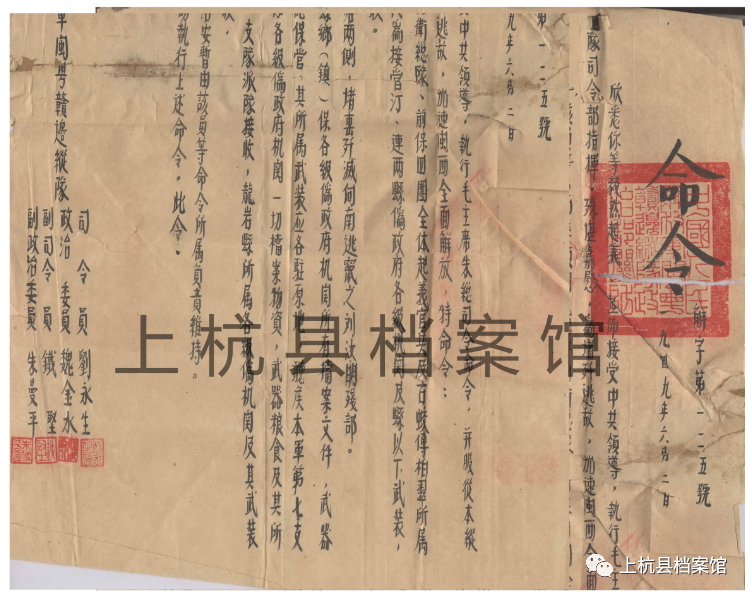 命令
解字第一二五號
一九四九年六月二日
欣悉你等毅然起義，接受中共領導，執行毛主
隊司令部指揮，殲逃敵，加速閩西全面
第一二五號
九年六月二日
受中共領導，執行毛主席朱總司令命令，并服從本縱
逃敵，加速閩西全面解放，特命令：
衛總隊、前保四團全体起義官兵及古蛟傅柏翠所属
代為接管汀、連兩縣偽政府各級机関及縣以下武裝，
兩側，堵截殲滅向南逃竄之劉汝明殘部。
鄉（鎮）保各級偽政府机関所有檔案文件，武器
保管，其所属武裝应各駐原地，聽候本軍第七支
各級偽政府机関一切檔案物資，武器粮食及其所
支隊派隊接收，龍岩縣所属各級偽机関及其武裝
治安暫由該員等命令所属負責維持。
執行上述命令。此令。
軍閩粵贛邊縱隊
司令員 劉永生
政治委員 魏金水
副司令員 鐵堅
副政治委員 朱曼平
上杭县档案馆
上杭县档案馆